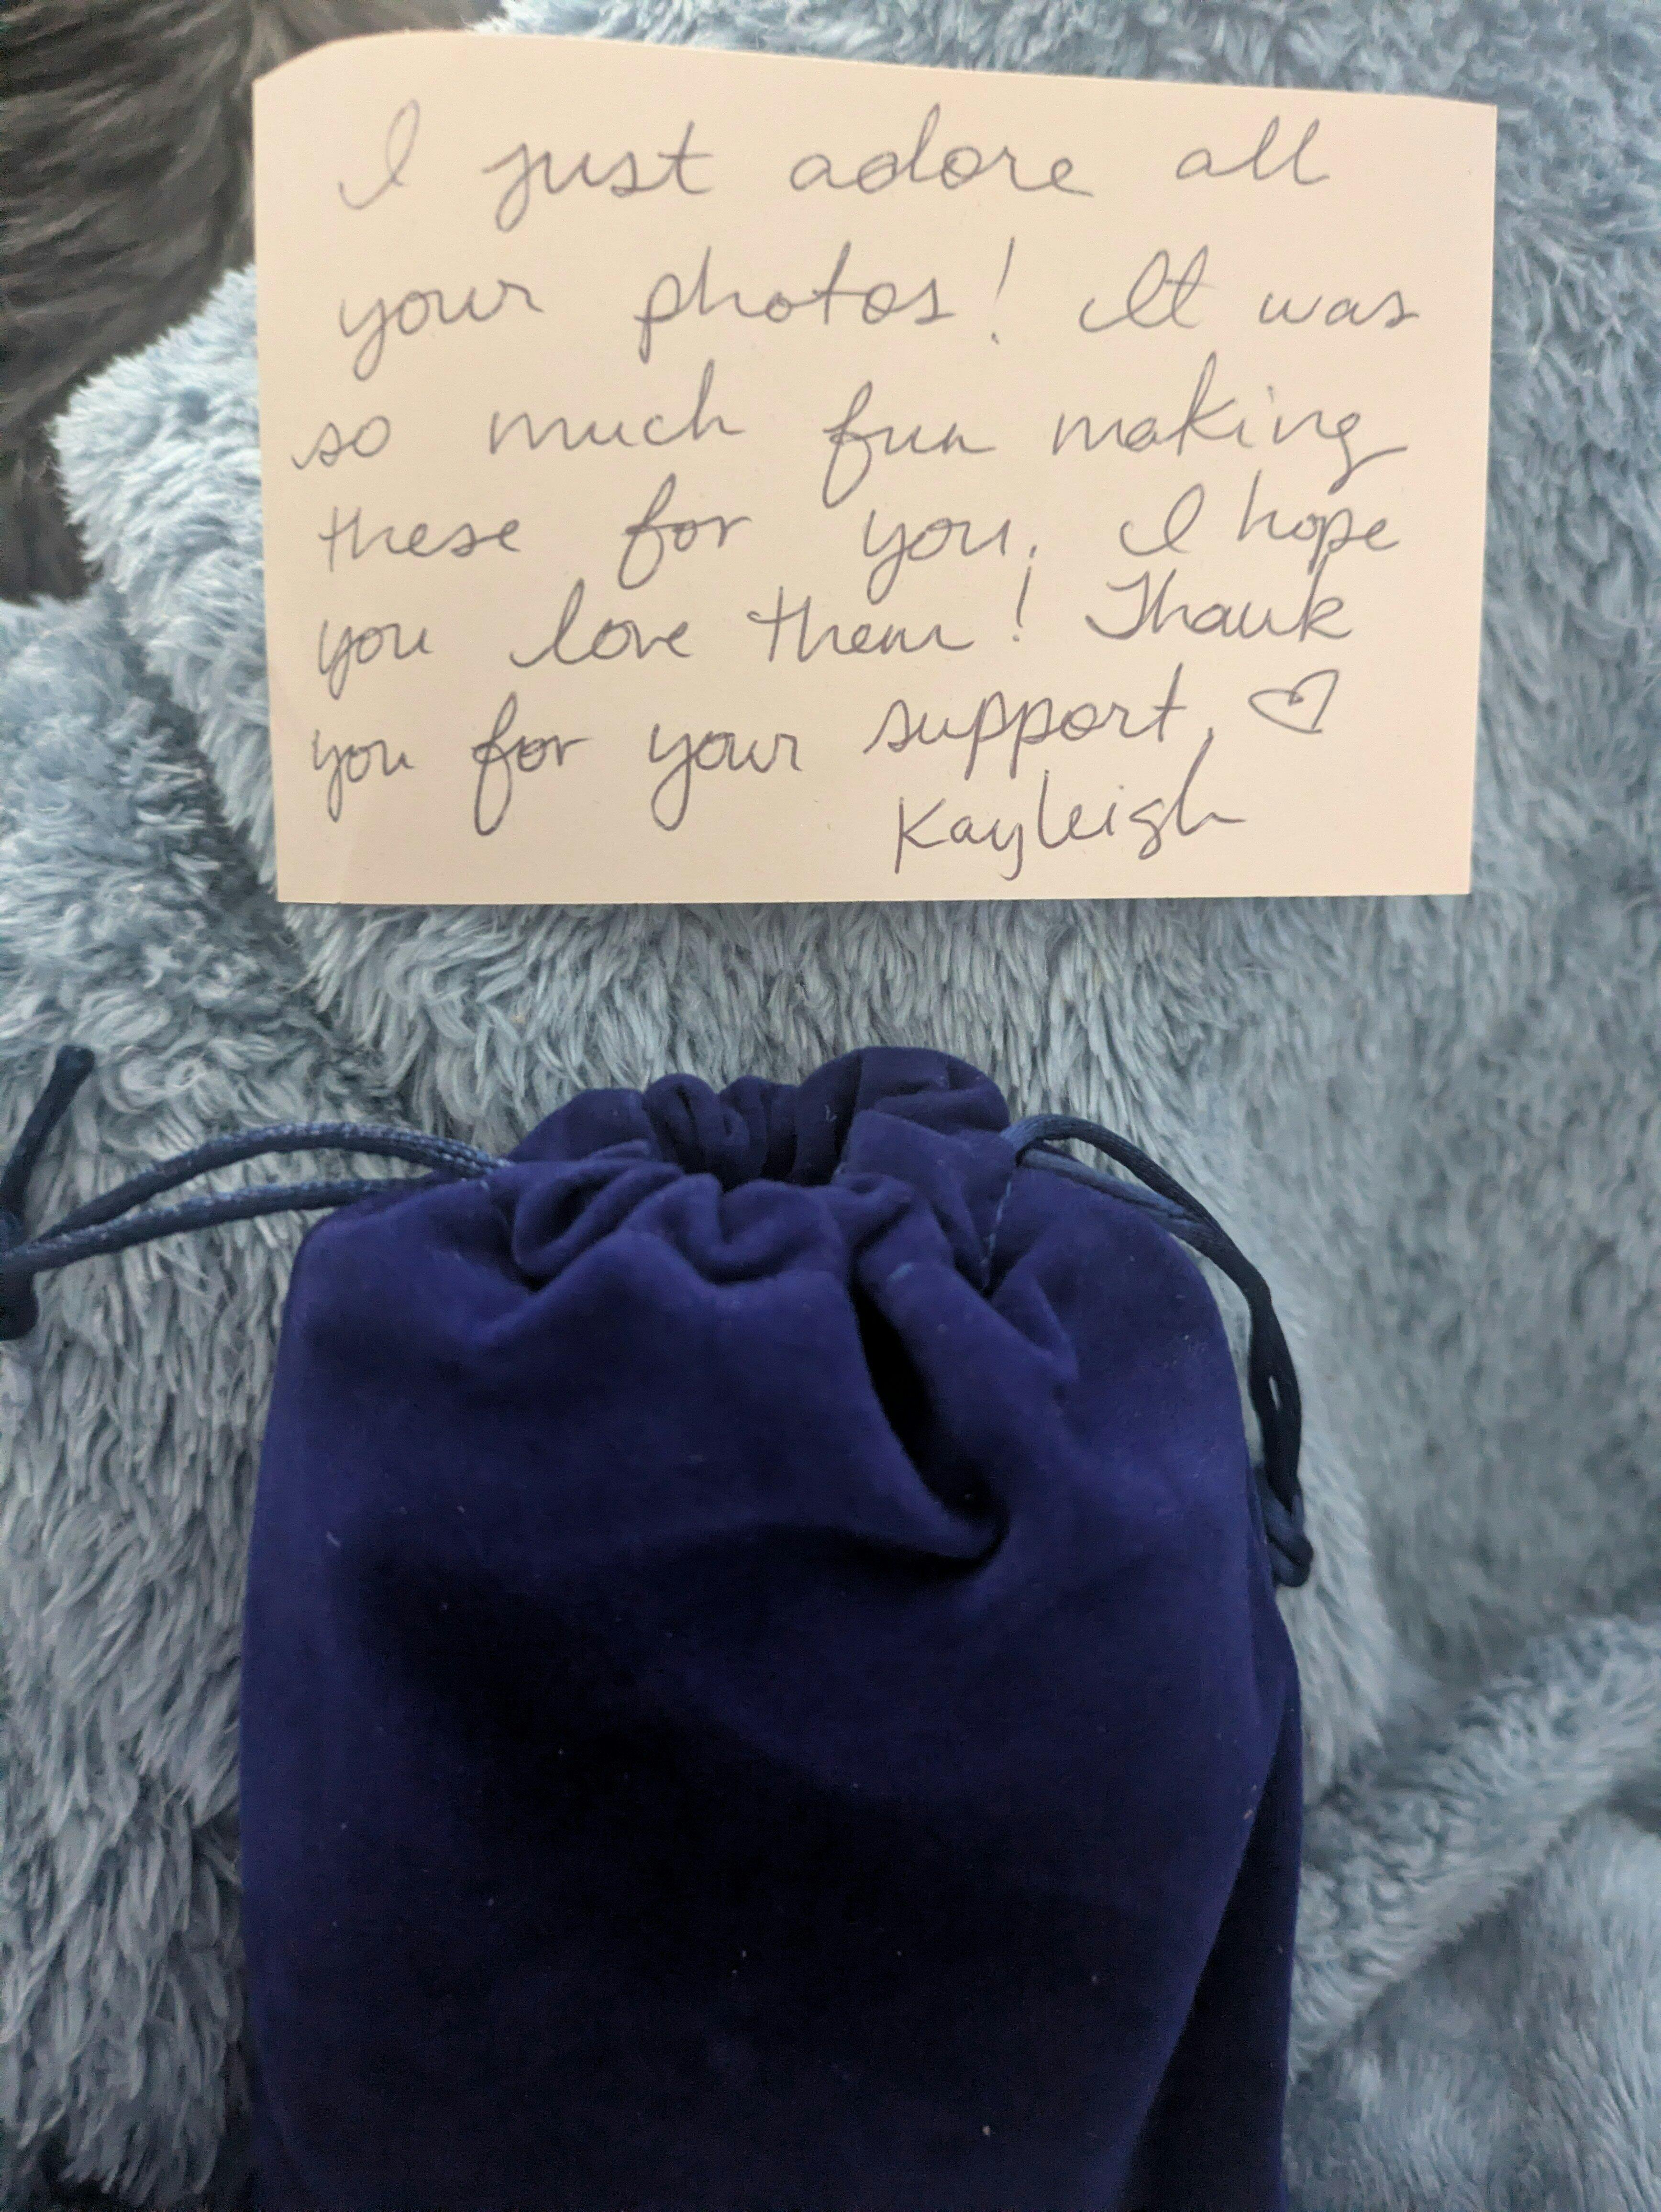 I just adore all
your photos! It was
so much fun making
these for you. I hope
you love them! Thank
you for your support. ♡
Kayleigh